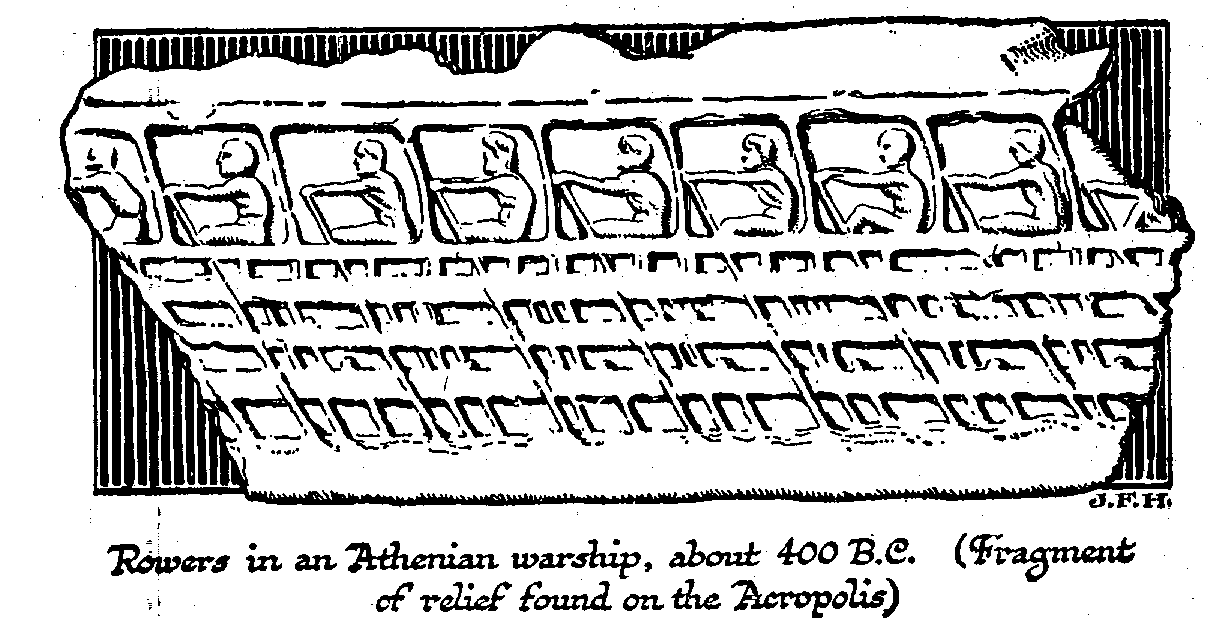 J.F.H.
Rowers in an Athenian warship, about 400 B.C. (Fragment
of relief found on the Acropolis)